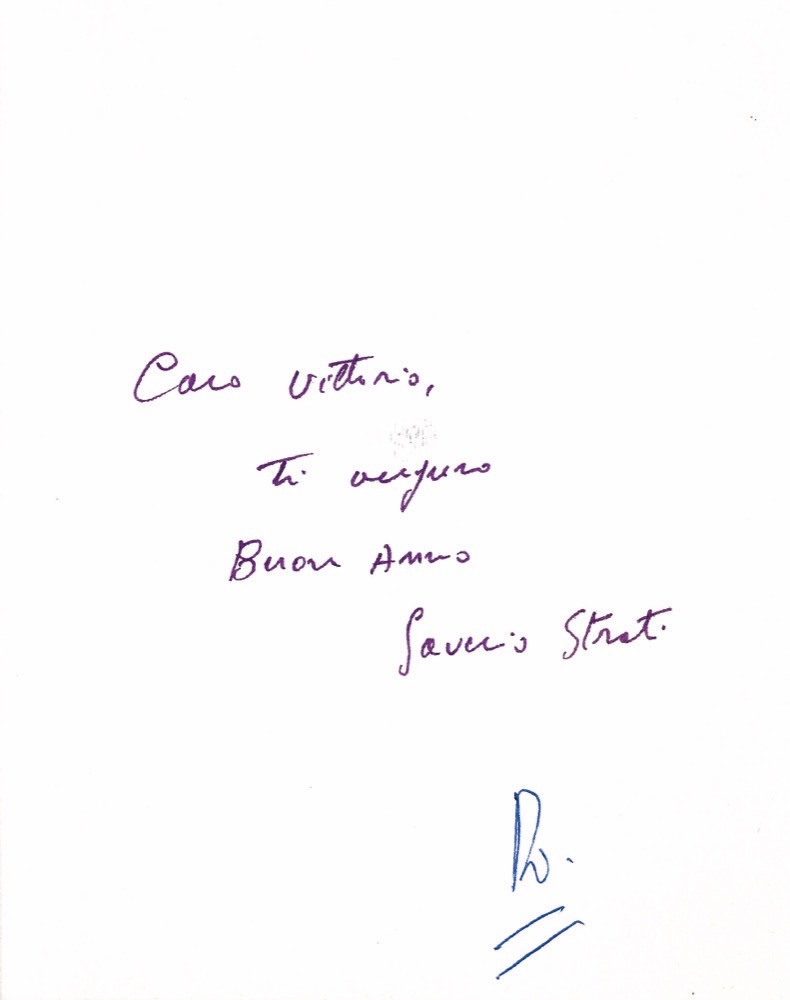 Caro Vittorio,
Ti auguro
Buon Anno
Saverio Strati